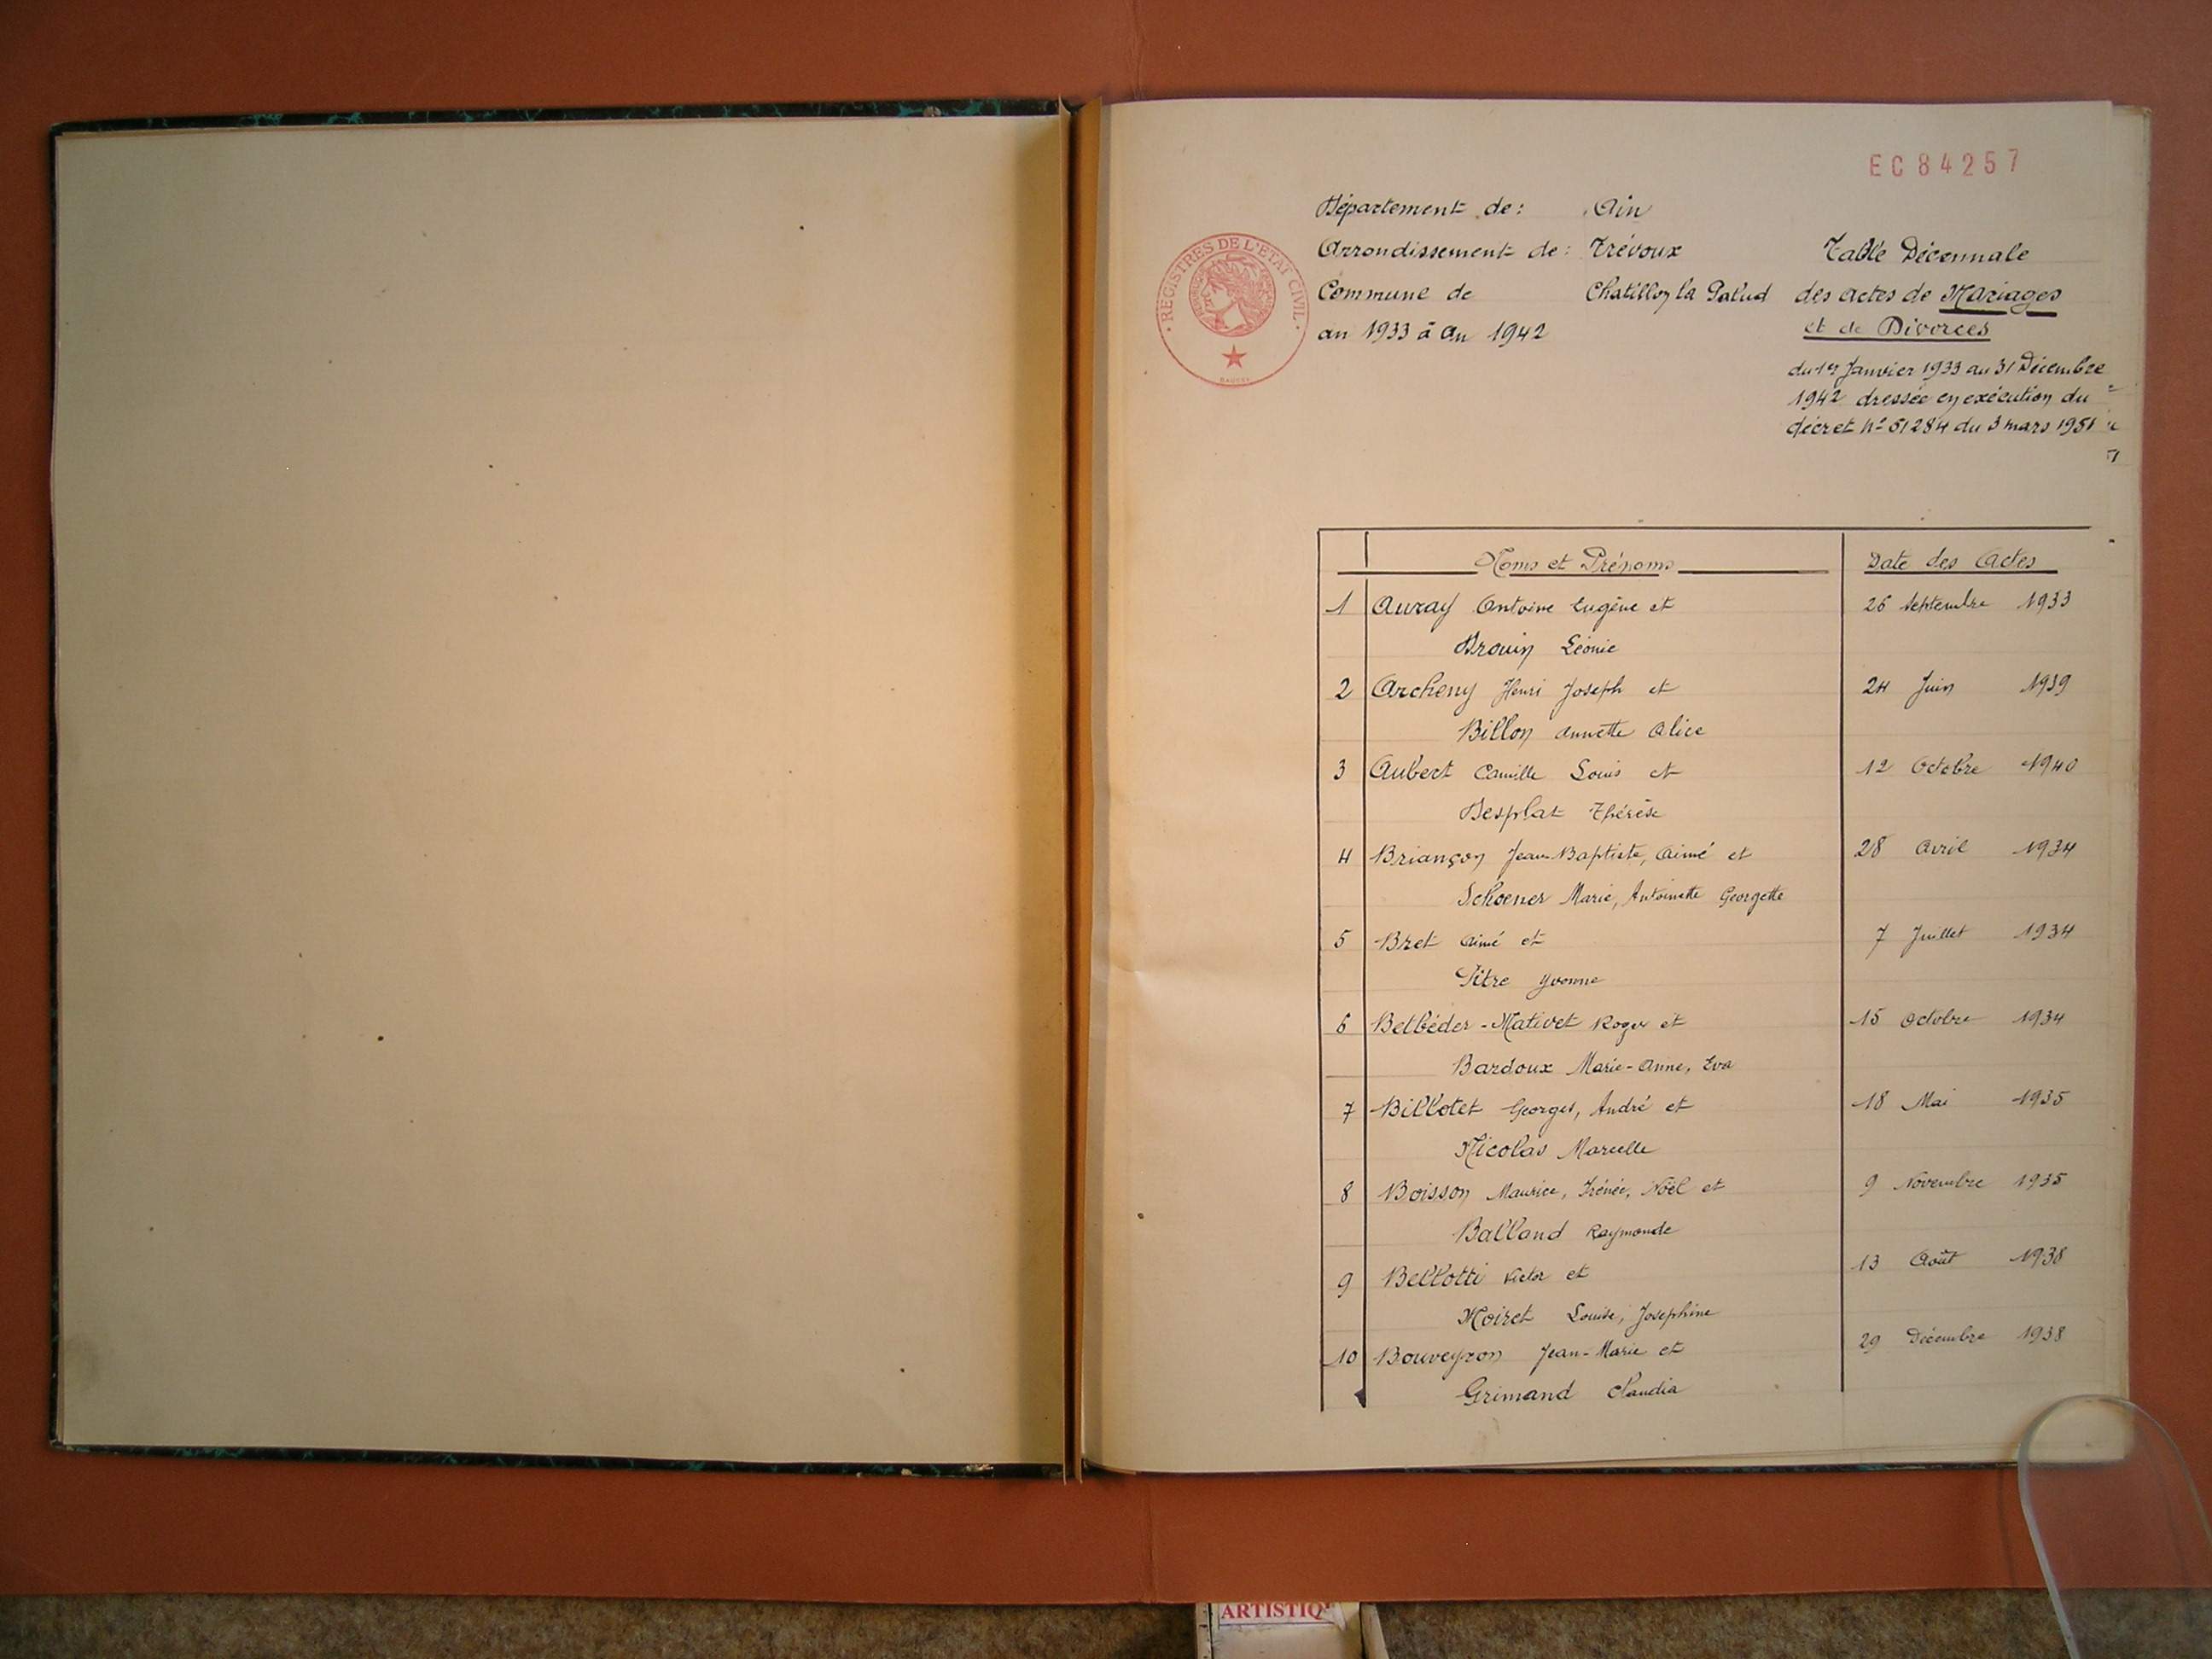 EC84257
Département de : Ain
Arrondissement de : Trévoux
Commune de Chatillon la Palud
an 1933 à an 1942
REGISTRES DE L'ETAT CIVIL
Table Décennale
des actes de Mariages
et de Divorces
du 1er Janvier 1933 au 31 Décembre
1942 dressée en exécution du
décret n° 51284 du 3 mars 1951
Noms et Prénoms Date des Actes
1 Auray Antoine Eugène et 26 Septembre 1933
Drouin Léonie
2 Archeny Henri Joseph et 24 Juin 1939
Billon Annette Alice
3 Aubert Camille Louis et 12 Octobre 1940
Desplat Thérèse
4 Briançon Jean-Baptiste, Aimé et 28 Avril 1934
Schoener Marie, Antoinette Georgette
5 Bret Aimé et 7 Juillet 1934
Pitre Yvonne
6 Belbéder-Mativet Roger et 15 Octobre 1934
Bardoux Marie-Anne, Eva
7 Billotet Georges, André et 18 Mai 1935
Nicolas Marcelle
8 Boisson Maurice, Irénée, Noël et 9 Novembre 1935
Balland Raymonde
9 Bellotti Victor et 13 Août 1938
Moiret Louise, Joséphine
10 Bouveyron Jean-Marie et 29 Décembre 1938
Grimand Claudia
ARTISTIQ